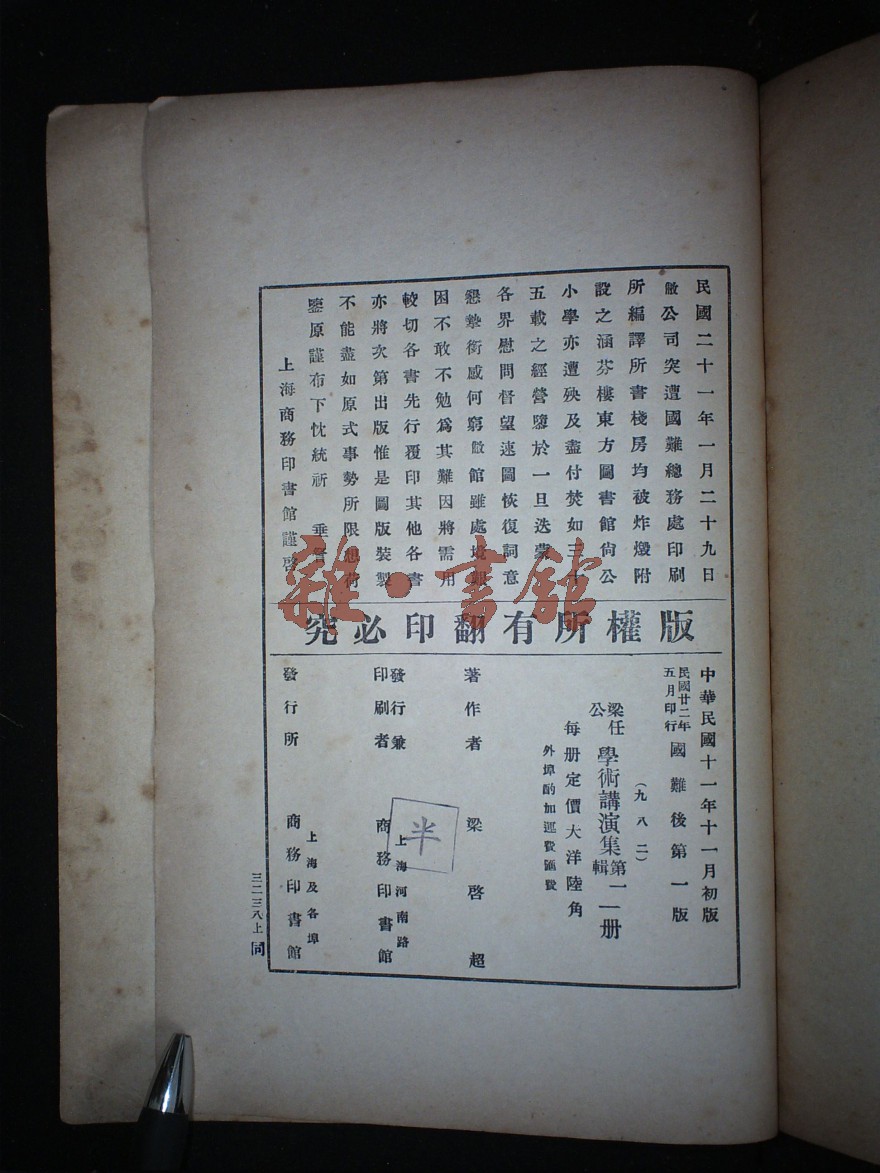 民國二十一年一月二十九日
敝公司突遭國難總務處印刷
所編譯所書棧房均被炸燬附
設之涵芬樓東方圖書館尙公
小學亦遭殃及盡付焚如三十
五載之經營隳於一旦迭蒙
各界慰問督望速圖恢復詞意
懇摯銜感何窮敝館雖處境艱
困不敢不勉爲其難因將需用
較切各書先行覆印其他各書
亦將次第出版惟是圖版裝製
不能盡如原式事勢所限想荷
鑒原謹布下忱統祈 垂詧
上海商務印書館謹啓
雜·書館
究必印翻有所權版
中華民國十一年十一月初版
民國廿二年五月印行 國難後第一版
(九八二)
梁任公 學術講演集第一輯 二册
每册定價大洋陸角
外埠酌加運費匯費
著作者 梁啓超
發行兼印刷者 上海河南路 商務印書館
半
發行所 上海及各埠 商務印書館
三二三八上 同